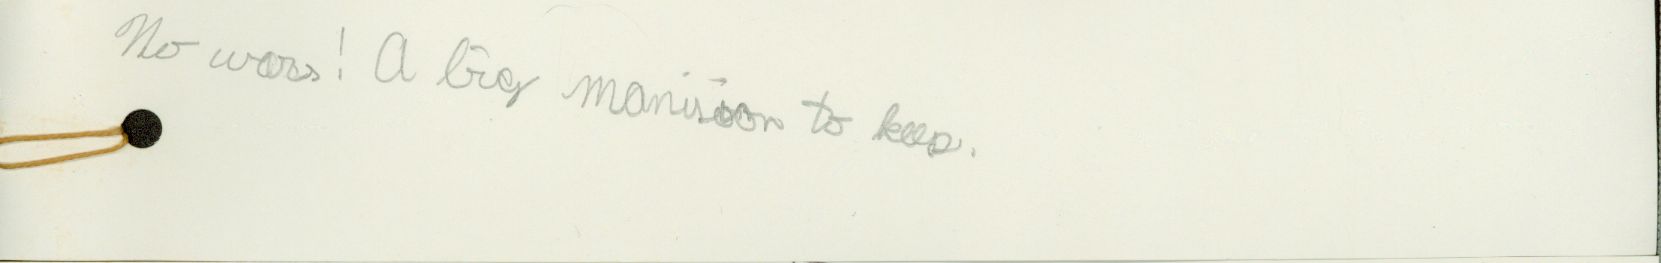 No wars! A big manisoon to keep.